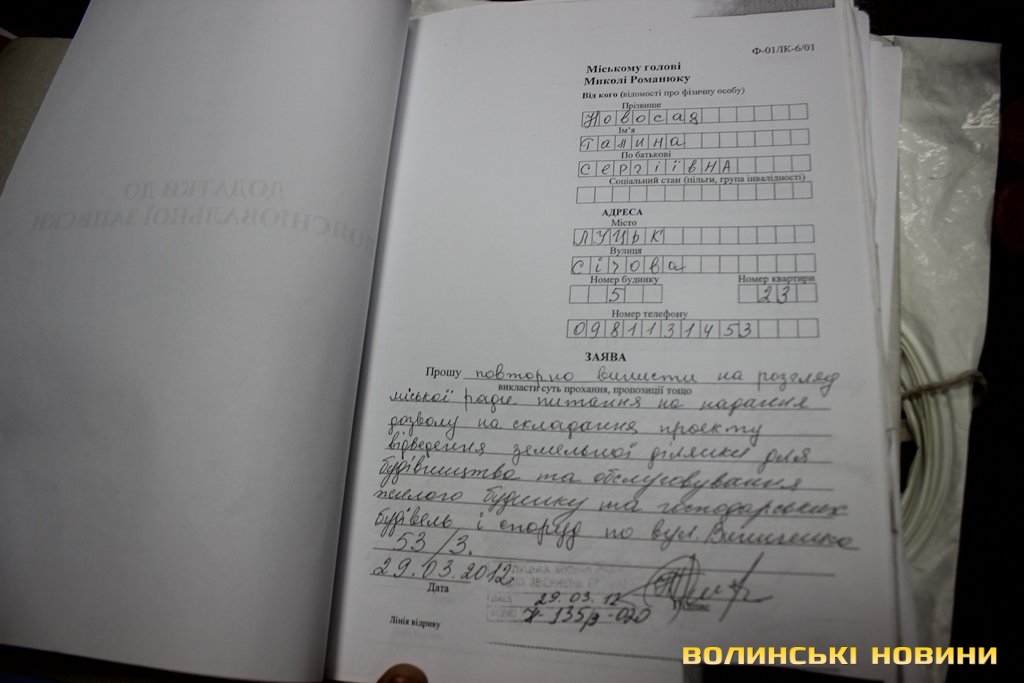 Ф-01/ІК-6/01
Міському голові
Миколі Романюку
Від кого (відомості про фізичну особу)
Прізвище
Новосад
Ім'я
Галина
По батькові
Сергіївна
Соціальний стан (пільги, група інвалідності)
АДРЕСА
Місто
Луцьк
Вулиця
Січова
Номер будинку Номер квартири
5 23
Номер телефону
0981131453
ЗАЯВА
Прошу повторно винести на розгляд
викласти суть прохання, пропозиції тощо
міської ради питання на надання
дозволу на складання проекту
відведення земельної ділянки для
будівництва та обслуговування
жилого будинку та господарських
будівель і споруд по вул. Винниченка
53/3.
29.03.2012
Дата
ДАТА 29.03.12
Підпис
Н-135/9-020
Лінія відриву
ДОДАТКИ ДО
ПОЯСНЮВАЛЬНОЇ ЗАПИСКИ
ВОЛИНСЬКІ НОВИНИ